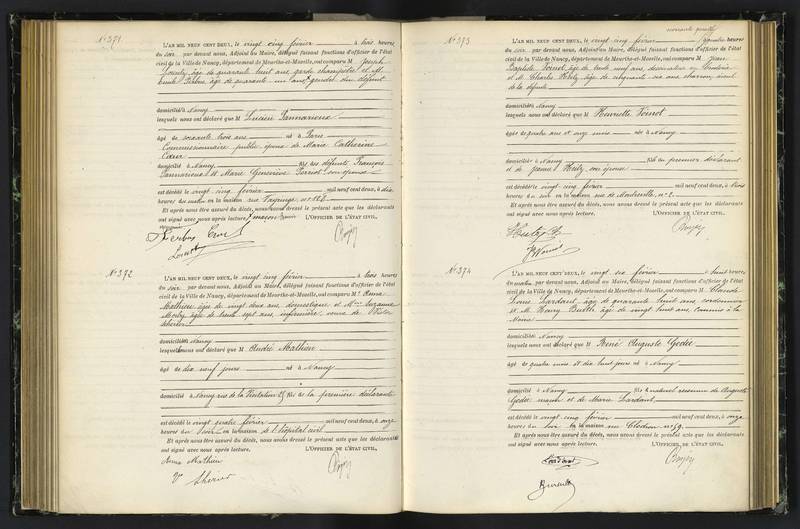 N° 371
L'AN MIL NEUF CENT DEUX, le vingt cinq février à trois heures
du soir par devant nous, Adjoint au Maire, délégué faisant fonctions d'officier de l'état
civil de la Ville de Nancy, département de Meurthe-et-Moselle, ont comparu M Joseph
âgé de quarante huit ans, garde champêtre et M.
Emile âgé de quarante un ans, gendre du défunt
domiciliés à Nancy
lesquels nous ont déclaré que M Lucien Pannarioux
âgé de soixante trois ans né à Paris
Commissionnaire public époux de Marie Catherine
Cœur
domicilié à Nancy fils des défunts François
Pannarioux et Marie Geneviève son épouse
est décédé le vingt cinq février mil neuf cent deux, à dix
heures du matin en la maison rue n° 126
Et après nous être assuré du décès, nous avons dressé le présent acte que les déclarants
ont signé avec nous après lecture. L'OFFICIER DE L'ÉTAT CIVIL,
N° 372
L'AN MIL NEUF CENT DEUX, le vingt cinq février à trois heures
du soir par devant nous, Adjoint au Maire, délégué faisant fonctions d'officier de l'état
civil de la Ville de Nancy, département de Meurthe-et-Moselle, ont comparu Mlle Anna
Mathieu âgée de vingt deux ans, domestique et Mme Suzanne
âgée de trente sept ans, infirmière, veuve de Victor
domiciliés à Nancy
lesquelles nous ont déclaré que M André Mathieu
âgé de dix neuf jours né à Nancy
domicilié à Nancy rue de la Visitation fils de la première déclarante
est décédé le vingt quatre février mil neuf cent deux, à onze
heures du soir en la maison de l'hôpital civil
Et après nous être assuré du décès, nous avons dressé le présent acte que les déclarants
ont signé avec nous après lecture. L'OFFICIER DE L'ÉTAT CIVIL,
Anna Mathieu
quarante quatre
N° 373
L'AN MIL NEUF CENT DEUX, le vingt cinq février à quatre heures
du soir par devant nous, Adjoint au Maire, délégué faisant fonctions d'officier de l'état
civil de la Ville de Nancy, département de Meurthe-et-Moselle, ont comparu M Jean
Baptiste Voinot, âgé de trente neuf ans
et M. Charles âgé de cinquante six ans charron, aïeul
de la défunte
domiciliés à Nancy
lesquels nous ont déclaré que M Henriette Voinot
âgée de quatre ans et onze mois née à Nancy
domiciliée à Nancy fille du premier déclarant
et de son épouse
est décédée le vingt cinq février mil neuf cent deux, à trois
heures du soir en la maison rue de n° 2
Et après nous être assuré du décès, nous avons dressé le présent acte que les déclarants
ont signé avec nous après lecture. L'OFFICIER DE L'ÉTAT CIVIL,
N° 374
L'AN MIL NEUF CENT DEUX, le vingt six février à huit heures
du matin par devant nous, Adjoint au Maire, délégué faisant fonctions d'officier de l'état
civil de la Ville de Nancy, département de Meurthe-et-Moselle, ont comparu M Claude
Louis Lardant, âgé de quarante huit ans, cordonnier
et M. Henry âgé de vingt huit ans, Commis à la
Mairie
domiciliés à Nancy
lesquels nous ont déclaré que M René Auguste Godié
âgé de quatre mois et dix huit jours né à Nancy
domicilié à Nancy fils naturel reconnu de Auguste
Godié et de Marie Lardant
est décédé le vingt cinq février mil neuf cent deux, à onze
heures du soir en la maison rue Clodion n° 59
Et après nous être assuré du décès, nous avons dressé le présent acte que les déclarants
ont signé avec nous après lecture. L'OFFICIER DE L'ÉTAT CIVIL,
Lardant